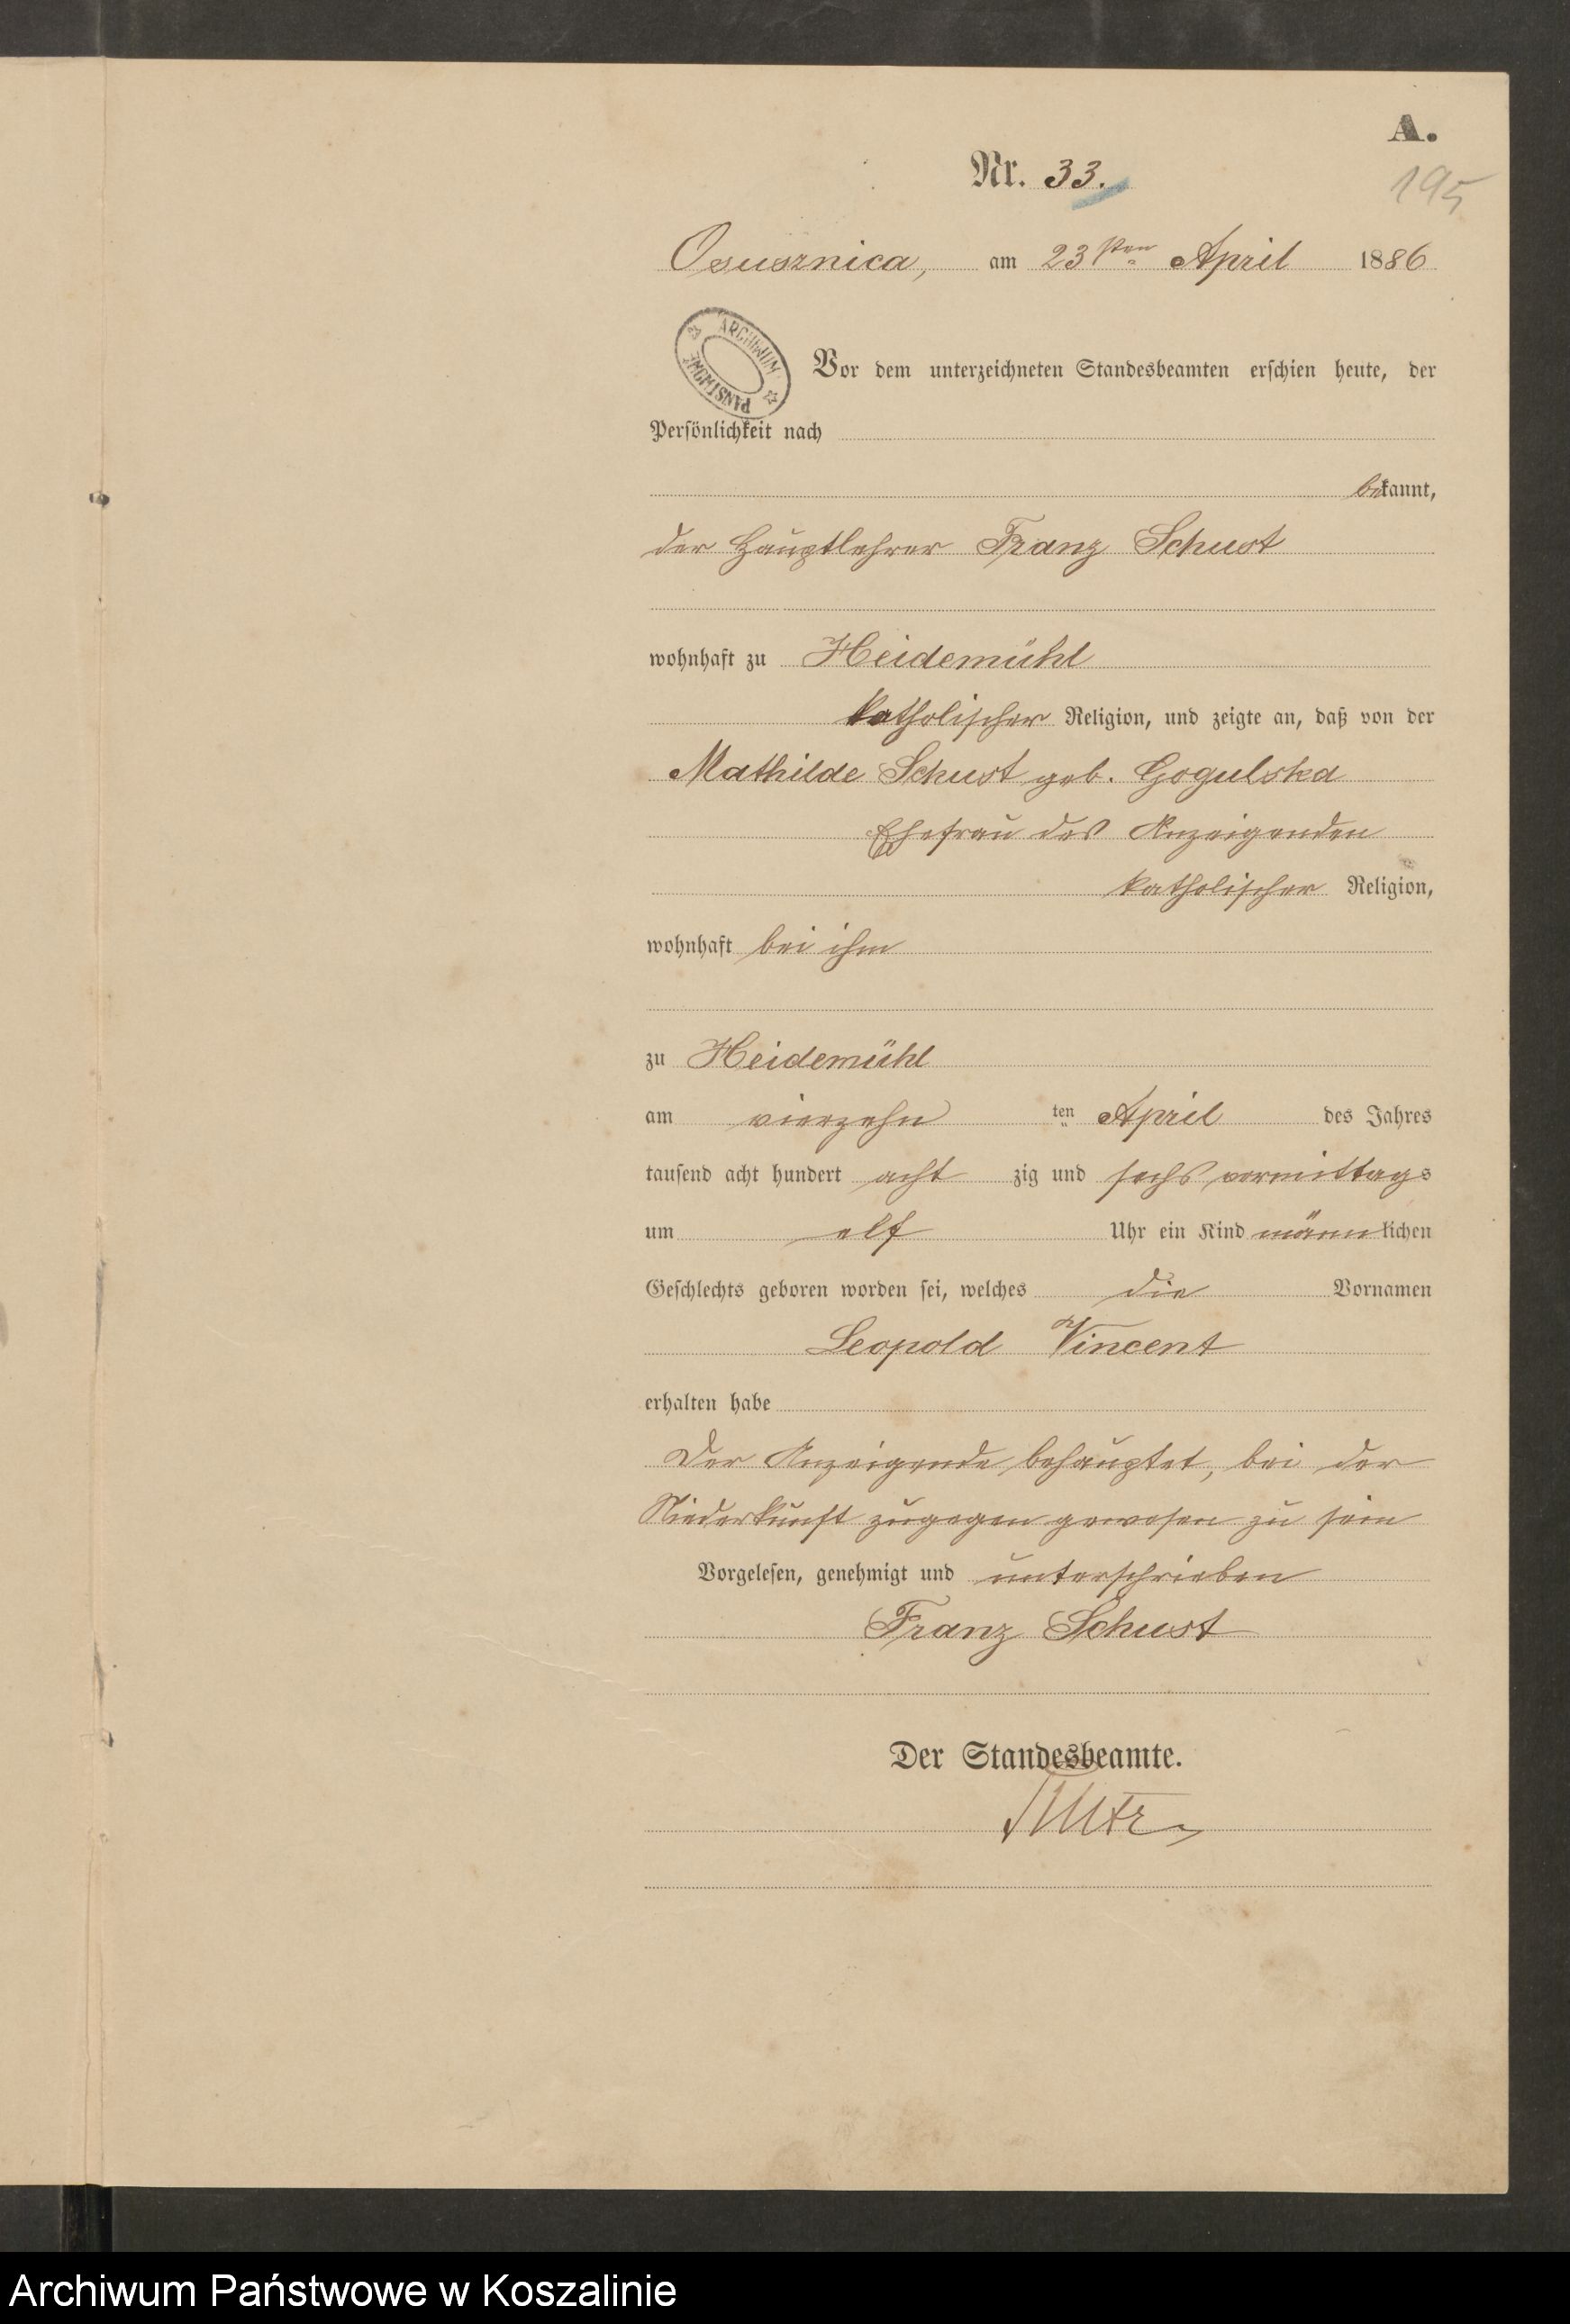 A.
Nr. 33.
195
Osusznica, am 23sten April 1886
ARCHIWUM PAŃSTWOWE
Vor dem unterzeichneten Standesbeamten erschien heute, der
Persönlichkeit nach
bekannt,
der Hauptlehrer Franz Schust
wohnhaft zu Heidemühl
katholischer Religion, und zeigte an, daß von der
Mathilde Schust geb. Gogulska
Ehefrau des Anzeigenden
katholischer Religion,
wohnhaft bei ihm
zu Heidemühl
am vierzehn ten April des Jahres
tausend acht hundert acht zig und sechs vormittags
um elf Uhr ein Kind männlichen
Geschlechts geboren worden sei, welches die Vornamen
Leopold Vincent
erhalten habe
Der Anzeigende behauptet, bei der
Niederkunft zugegen gewesen zu sein
Vorgelesen, genehmigt und unterschrieben
Franz Schust
Der Standesbeamte.
Archiwum Państwowe w Koszalinie